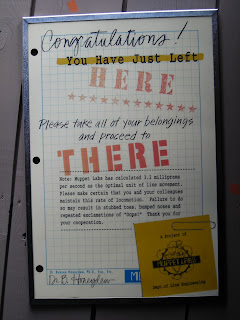 Congratulations!
You Have Just Left
HERE
Please take all of your belongings
and proceed to
THERE
Note: Muppet Labs has calculated 3.2 milliproms
per second as the optimal unit of line movement.
Please make certain that you and your colleagues
maintain this rate of locomotion. Failure to do
so may result in stubbed toes, bumped noses and
repeated exclamations of "Oops!" Thank you for
your cooperation.
A project of
MUPPET LABS
Dept. of Line Engineering
Dr. B. Honeydew